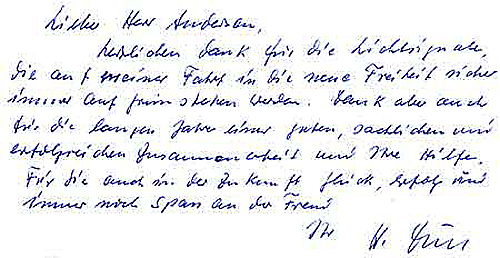 Lieber Herr Anderson,
herzlichen Dank für die Lichtsignale,
die auf meiner Fahrt in die neue Freiheit sicher
immer auf grün stehen werden. Dank aber auch
für die langen Jahre einer guten, sachlichen und
erfolgreichen Zusammenarbeit und Ihre Hilfe.
Für die auch in der Zukunft Glück, Erfolg und
immer noch Spass an der Freud
Ihr H.